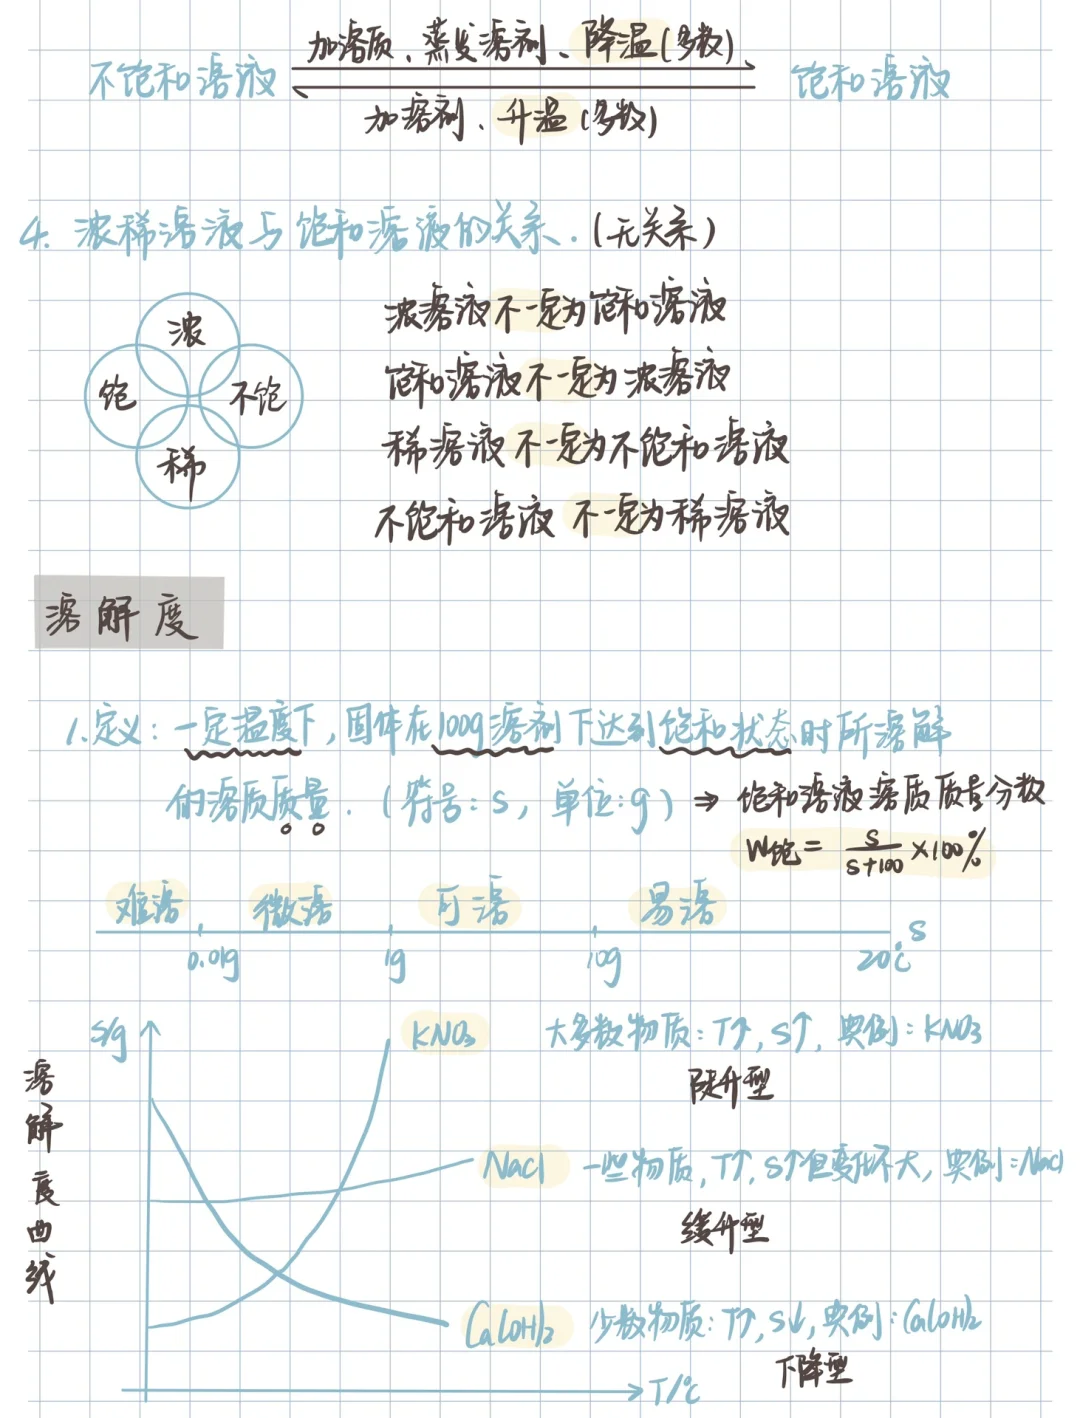 加溶质、蒸发溶剂、降温(多数)
不饱和溶液 饱和溶液
加溶剂、升温(多数)
4. 浓稀溶液与饱和溶液的关系.(无关系)
浓
饱 不饱
稀
浓溶液不一定为饱和溶液
饱和溶液不一定为浓溶液
稀溶液不一定为不饱和溶液
不饱和溶液不一定为稀溶液
溶解度
1.定义:一定温度下,固体在100g溶剂下达到饱和状态时所溶解
的溶质质量.(符号:S,单位:g)⇒饱和溶液溶质质量分数
W饱= S/S+100 ×100%
难溶 微溶 可溶 易溶
0.01g 1g 10g 20℃ S
S/g
溶解度曲线
KNO₃ 大多数物质:T↑,S↑,典例:KNO₃
陡升型
NaCl 一些物质,T↑,S↑但变化不大,典例:NaCl
缓升型
Ca(OH)₂ 少数物质:T↑,S↓,典例:Ca(OH)₂
下降型
T/℃